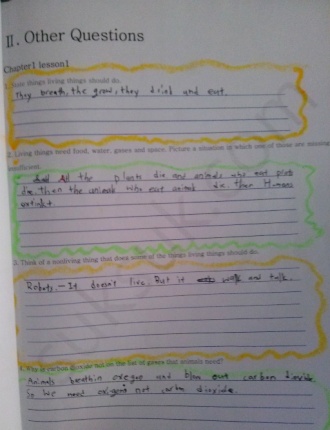 II. Other Questions
Chapter1 lesson1
1. things living things should do.
They breath, the grow, they drink and eat.
2. Living things need food, water, gases and space. Picture a situation in which one of those are missing
insufficient.
All the plants die and animals who eat plants
die. then the animals who eat animal die. then Humans
extinkt
3. Think of a nonliving thing that does some of the things living things do.
Robots - It doesn't live. But it walk and talk.
4. Why is carbon dioxide not on the list of gases that animals need?
Animals breathin oxegen and blow out carbon dioxide.
So we need oxigens not carbon dioxide.